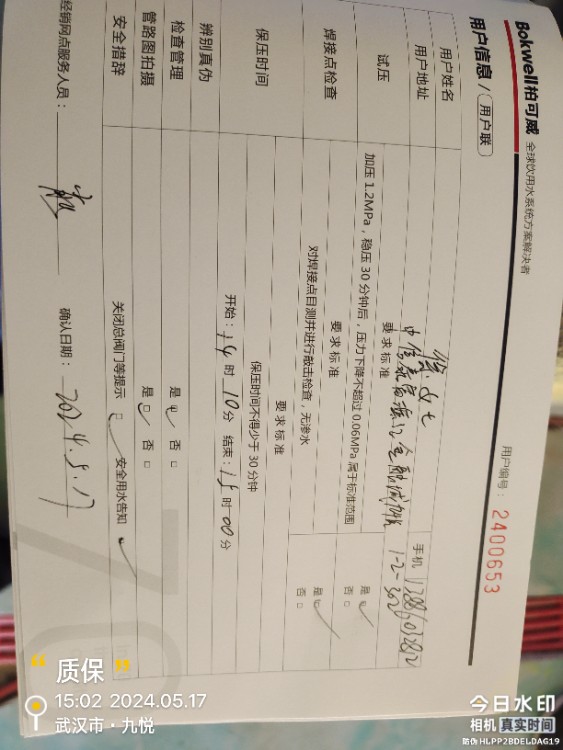 Bokwell柏可威 全球饮用水系统方案解决者
用户编号： 2400653
用户信息/用户联
用户姓名 女士 手机
用户地址 1-2-302
试压 要求标准
加压 1.2MPa，稳压 30 分钟后，压力下降不超过 0.06MPa 属于标准范围 是 否
焊接点检查 要求标准
对焊接点目测并进行敲击检查，无渗水 是 否
保压时间 要求标准
保压时间不得少于 30 分钟
开始：14 时 10 分 结束：15 时 00 分
辨别真伪
检查管理 是 否
管路图拍摄 是 否
安全措辞 关闭总阀门等提示 安全用水告知
经销网点服务人员： 确认日期：2024.5.17
质保
15:02 2024.05.17
武汉市·九悦
今日水印
相机 真实时间
防伪 HLPP2BDELDAG19